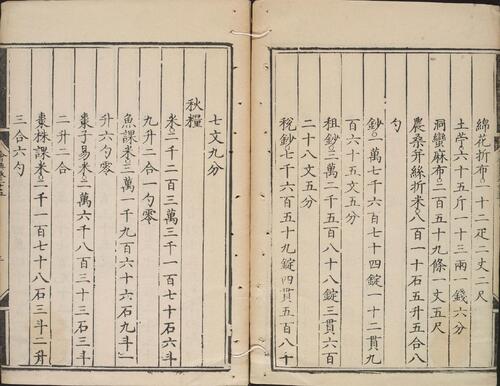 綿花折布一十二疋二丈二尺
土苧六十五斤一十三兩一錢六分
洞蠻麻布二百五十九條一丈五尺
農桑并絲折米八百一十石五升五合八
勺
鈔一萬七千六百七十四錠一十二貫九
百六十五文五分
租鈔三萬二千五百八十八錠三貫六百
二十八文五分
稅鈔七千六百五十九錠四貫五百八十
七文九分
秋糧
米二千二百三萬三千一百七十石六斗
九升二合一勺零
魚課米三萬一千九百六十六石九斗一
升六勺零
棗子易米二萬六千八百三十三石三斗
二升二合
棗株課米二千一百七十八石三斗二升
三合六勺